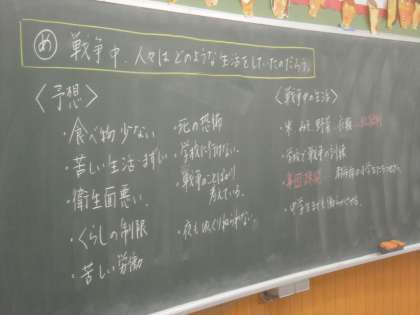 め 戦争中、人々はどのような生活をしていたのだろう。
〈予想〉
・食べ物少ない
・苦しい生活・まずい
・衛生面悪い
・くらしの制限
・苦しい労働
・死の恐怖
・学校に行けない。
・戦争のことばかり
考えている。
・夜もぬくぬくねられない。
〈戦争中の生活〉
・米 みそ 野菜 衣類
・学校で戦争の訓練
集団疎開
・中学生も